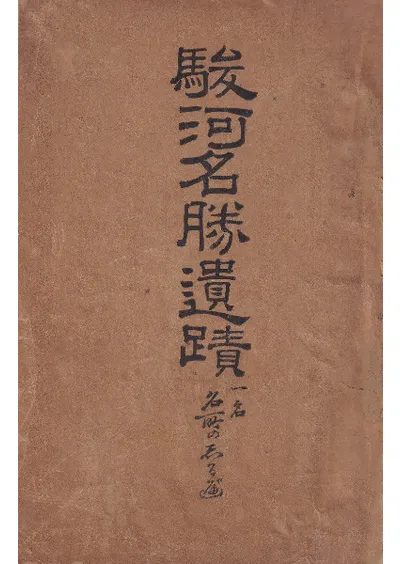 駿河名勝遺蹟
一名
名所の志る遍